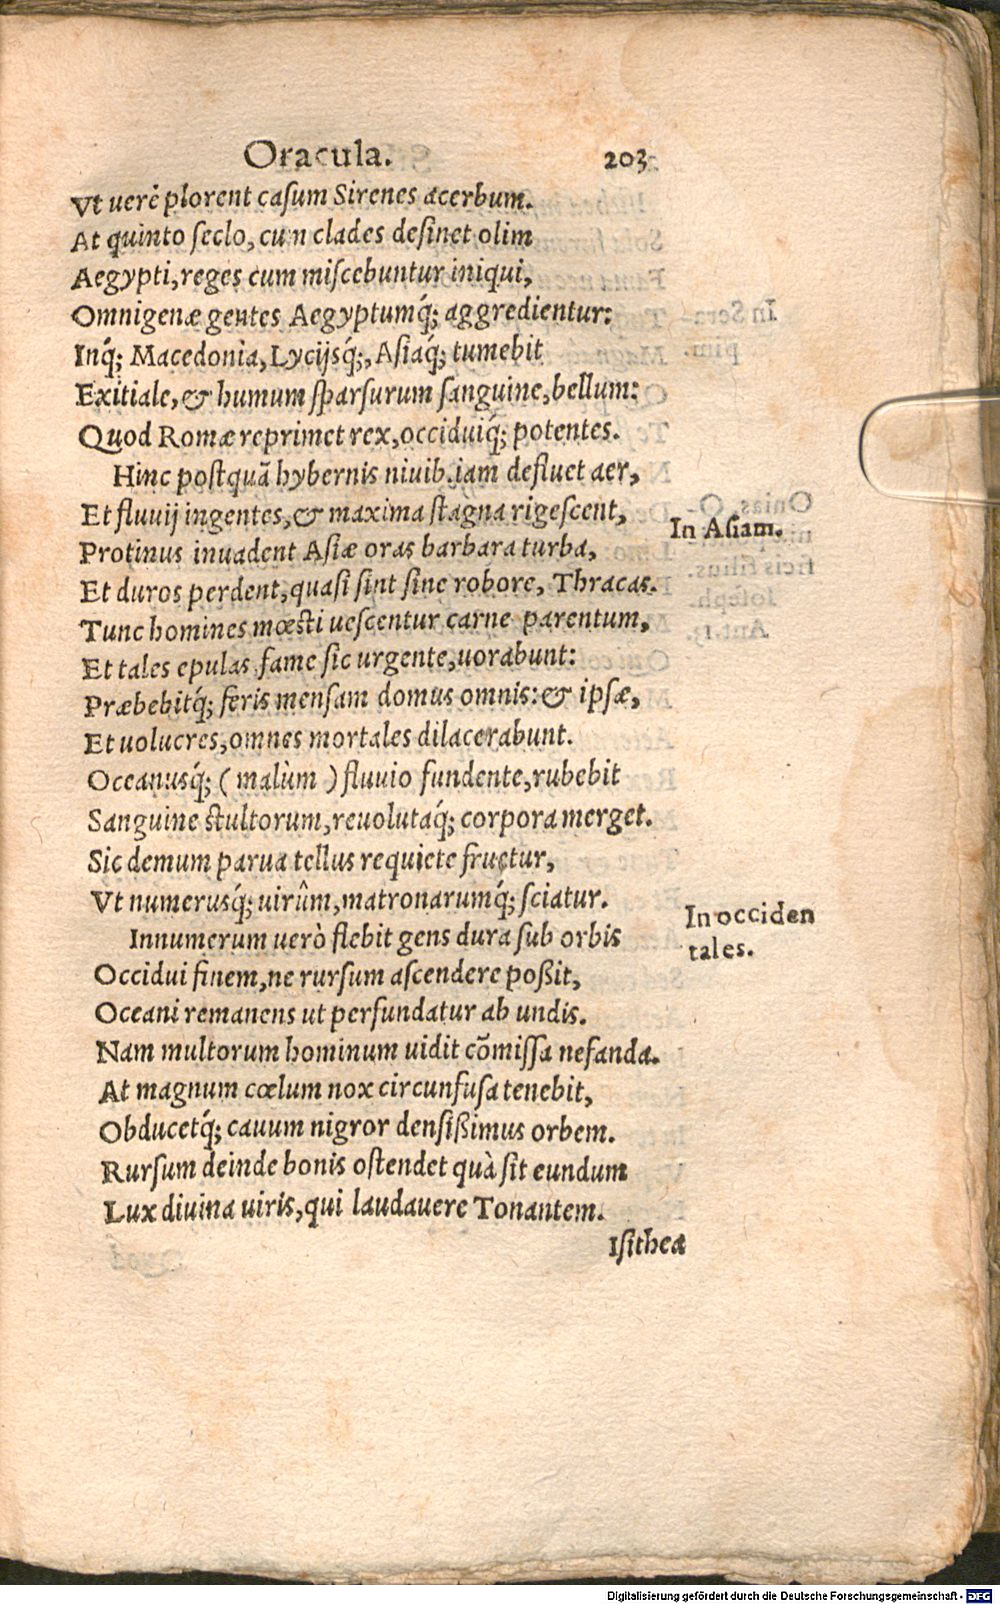 Oracula. 203
Vt uerè plorent casum Sirenes acerbum.
At quinto seclo, cum clades desinet olim
Aegypti, reges cum miscebuntur iniqui,
Omnigenæ gentes Aegyptumq́; aggredientur:
Inq́; Macedonia, Lycijsq́;, Asiaq́; tumebit
Exitiale, & humum sparsurum sanguine, bellum:
Quod Romæ reprimet rex, occiduiq́; potentes.
Hinc postquã hybernis niuib. iam defluet aer,
Et fluuij ingentes, & maxima stagna rigescent,
In Asiam.
Protinus inuadent Asiæ oras barbara turba,
Et duros perdent, quasi sint sine robore, Thracas.
Tunc homines mœsti uescentur carne parentum,
Et tales epulas fame sic urgente, uorabunt:
Præbebitq́; feris mensam domus omnis: & ipsæ,
Et uolucres, omnes mortales dilacerabunt.
Oceanusq́; ( malùm ) fluuio fundente, rubebit
Sanguine stultorum, reuolutaq́; corpora merget.
Sic demum parua tellus requiete fruetur,
Vt numerusq́; uirûm, matronarumq́; sciatur.
In occiden
tales.
Innumerum uerò flebit gens dura sub orbis
Occidui finem, ne rursum ascendere poßit,
Oceani remanens ut perfundatur ab undis.
Nam multorum hominum uidit cõmissa nefanda.
At magnum cœlum nox circunfusa tenebit,
Obducetq́; cauum nigror densißimus orbem.
Rursum deinde bonis ostendet quà sit eundum
Lux diuina uiris, qui laudauere Tonantem.
Isithea
Digitalisierung gefördert durch die Deutsche Forschungsgemeinschaft - DFG